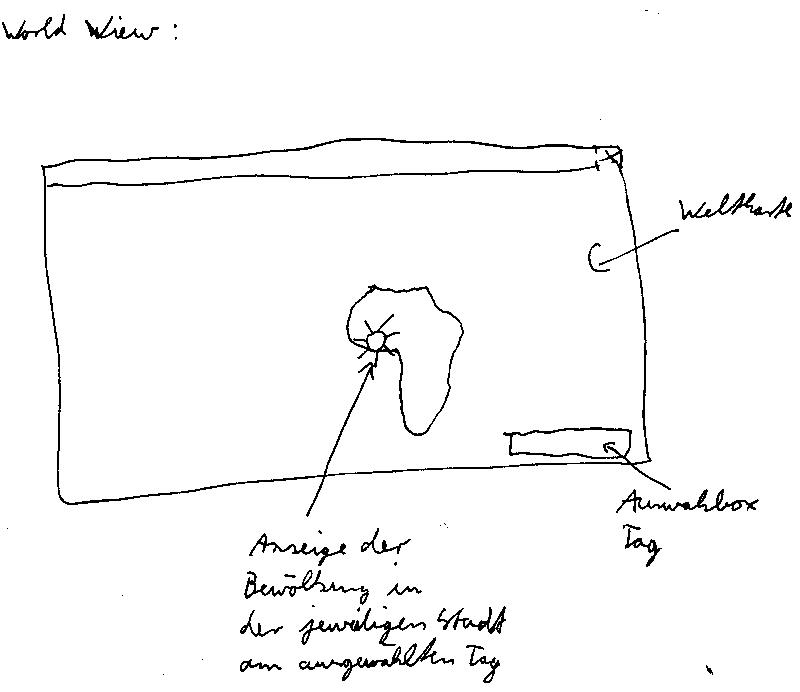 World View :
Weltkarte
Auswahlbox
Tag
Anzeige der
Bewölkung in
der jeweiligen Stadt
am ausgewählten Tag